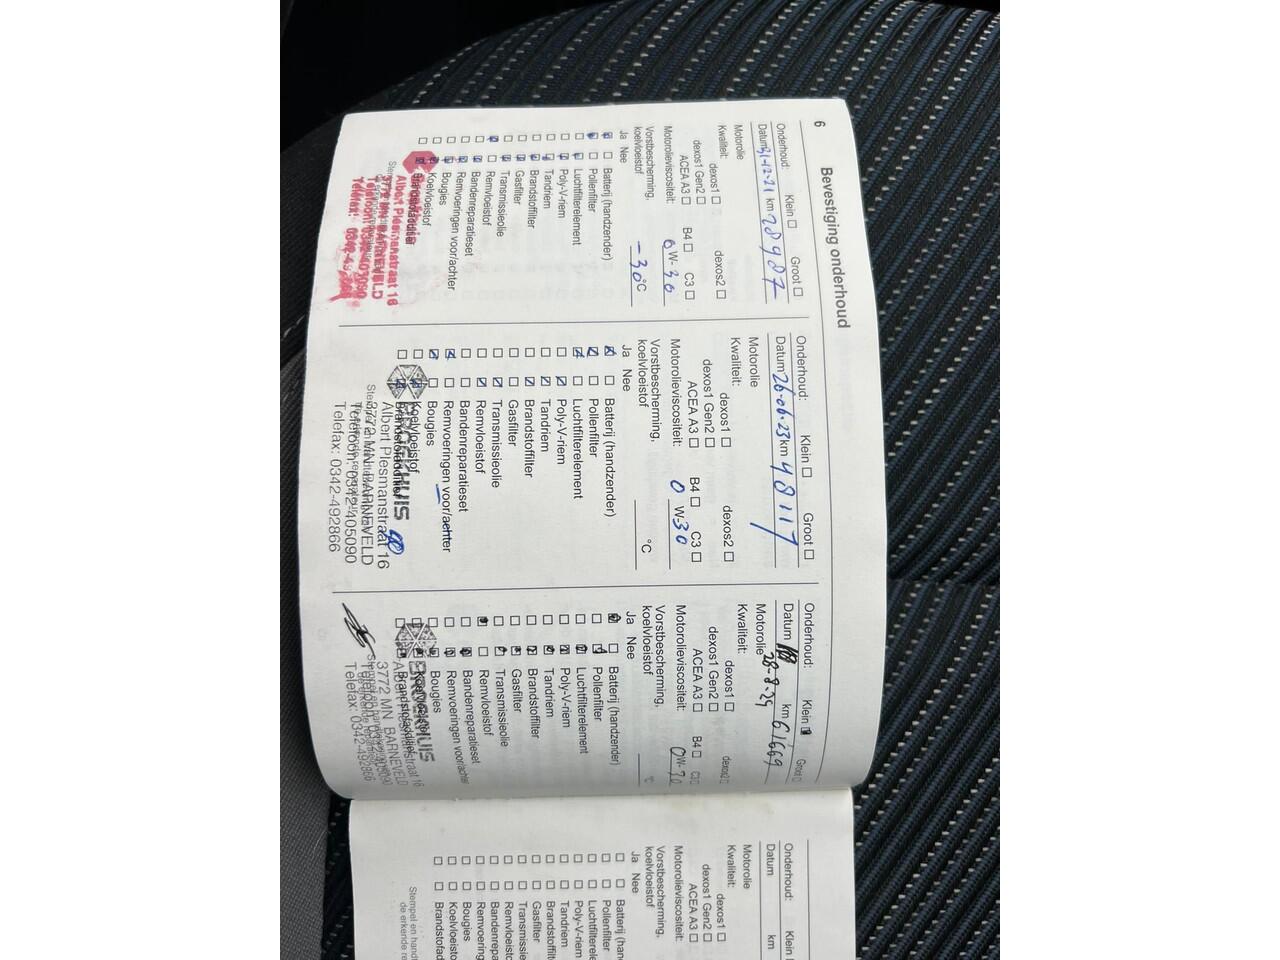 6
Bevestiging onderhoud
Onderhoud: Klein Groot
Datum 31-12-21 km 28987
Motorolie
Kwaliteit: dexos1 dexos2
dexos1 Gen2
ACEA A3 B4 C3
Motorolieviscositeit: 0 W-30
Vorstbescherming,
koelvloeistof -30 °C
Ja Nee
Batterij (handzender)
Pollenfilter
Luchtfilterelement
Poly-V-riem
Tandriem
Brandstoffilter
Gasfilter
Transmissieolie
Remvloeistof
Bandenreparatieset
Remvoeringen voor/achter
Bougies
Koelvloeistof
Albert Plesmanstraat 16
3772 MN BARNEVELD
Telefoon: 0342-405090
Onderhoud: Klein Groot
Datum 26-06-23 km 48117
Motorolie
Kwaliteit: dexos1 dexos2
dexos1 Gen2
ACEA A3 B4 C3
Motorolieviscositeit: 0 W-30
Vorstbescherming,
koelvloeistof °C
Ja Nee
Batterij (handzender)
Pollenfilter
Luchtfilterelement
Poly-V-riem
Tandriem
Brandstoffilter
Gasfilter
Transmissieolie
Remvloeistof
Bandenreparatieset
Remvoeringen voor/achter
Bougies
Koelvloeistof
BROEKHUIS
Albert Plesmanstraat 16
3772 MN BARNEVELD
Telefoon: 0342-405090
Telefax: 0342-492866
Onderhoud: Klein Groot
Datum 28-8-24 km 61669
Motorolie
Kwaliteit: dexos1 dexos2
dexos1 Gen2
ACEA A3 B4 C3
Motorolieviscositeit:
Vorstbescherming,
koelvloeistof °C
Ja Nee
Batterij (handzender)
Pollenfilter
Luchtfilterelement
Poly-V-riem
Tandriem
Brandstoffilter
Gasfilter
Transmissieolie
Remvloeistof
Bandenreparatieset
Remvoeringen voor/achter
Bougies
BROEKHUIS
3772 MN BARNEVELD
Telefax: 0342-492866
Onderhoud: Klein
Datum km
Motorolie
Kwaliteit: dexos1
dexos1 Gen2
ACEA A3
Motorolieviscositeit:
Vorstbescherming,
koelvloeistof
Ja Nee
Batterij (hand
Pollenfilter
Luchtfilterele
Poly-V-riem
Tandriem
Brandstoffilt
Gasfilter
Transmissie
Remvloeisto
Bandenrepa
Remvoering
Bougies
Koelvloeist
Brandstofad
Stempel en handt
de erkende re